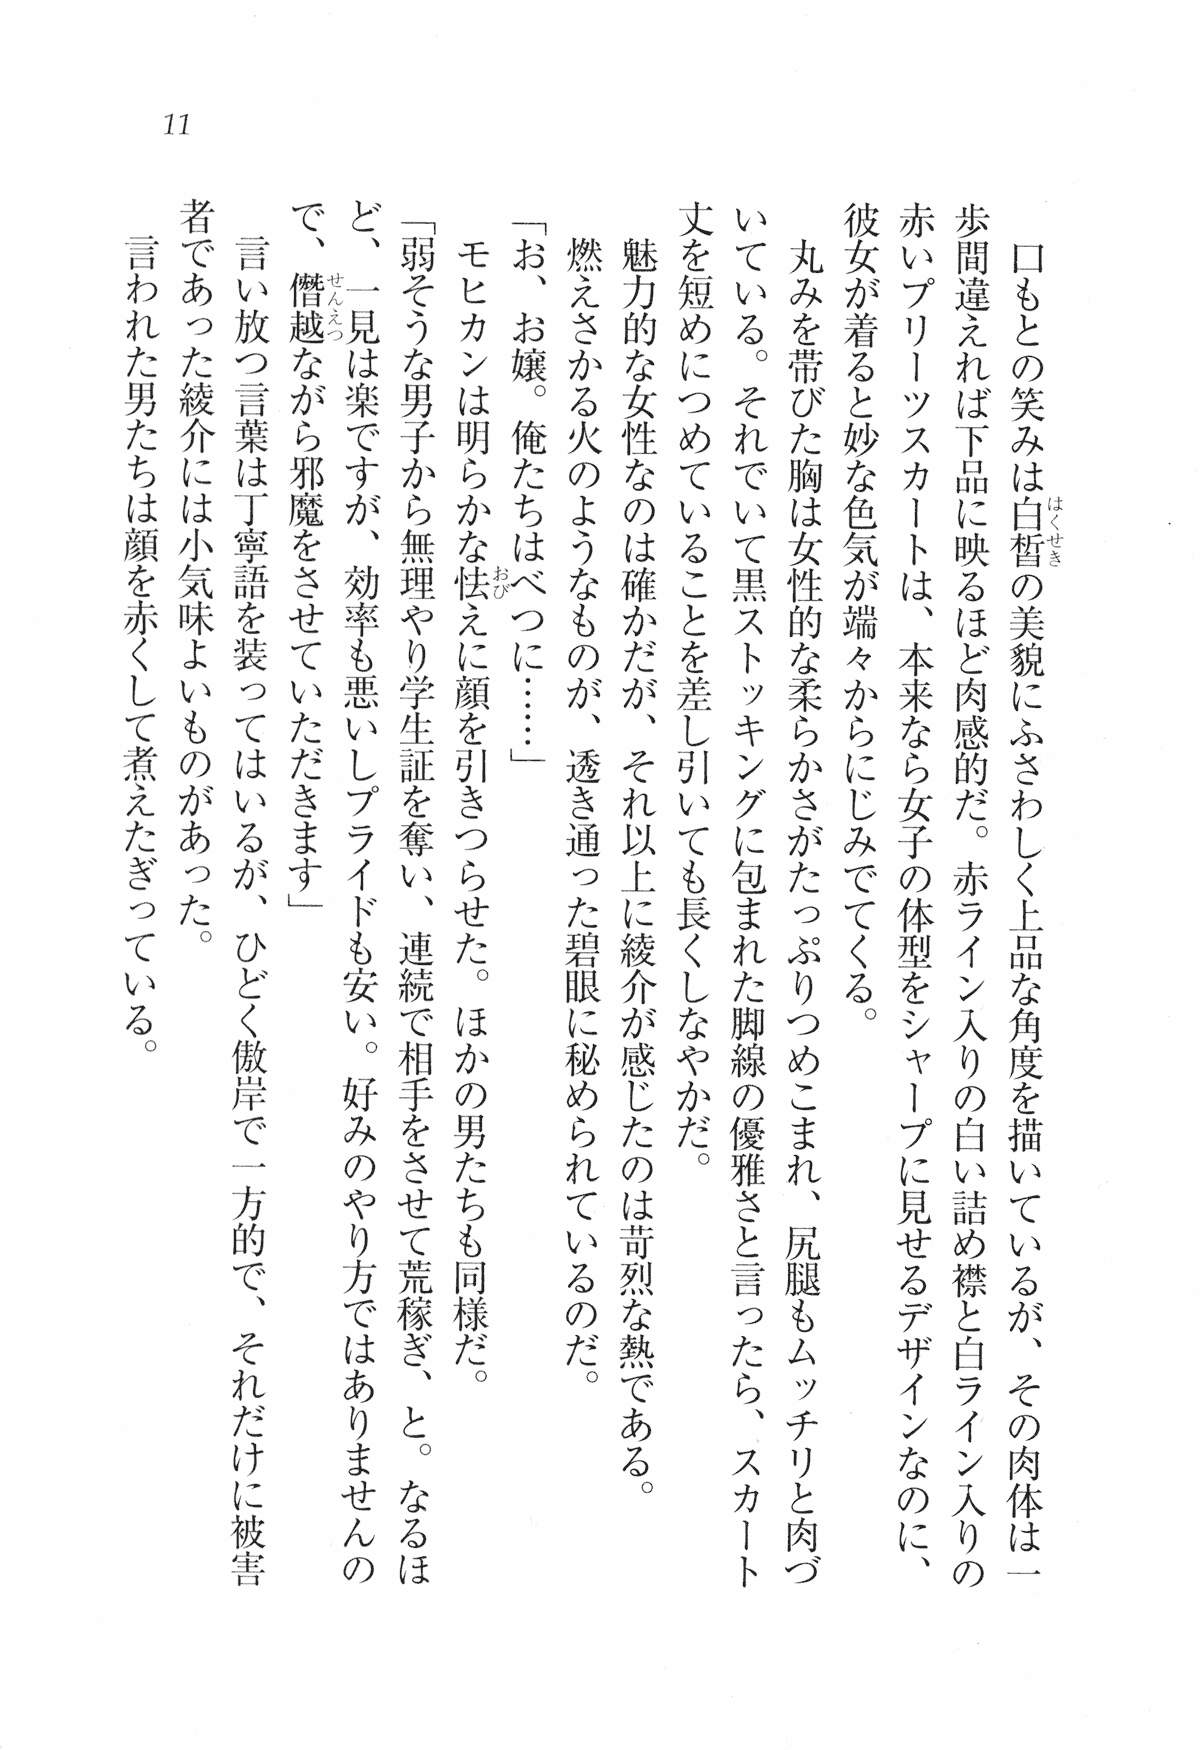 11
口もとの笑みは白皙の美貌にふさわしく上品な角度を描いているが、その肉体は一
はくせき
歩間違えれば下品に映るほど肉感的だ。赤ライン入りの白い詰め襟と白ライン入りの
赤いプリーツスカートは、本来なら女子の体型をシャープに見せるデザインなのに、
彼女が着ると妙な色気が端々からにじみでてくる。
丸みを帯びた胸は女性的な柔らかさがたっぷりつめこまれ、尻腿もムッチリと肉づ
いている。それでいて黒ストッキングに包まれた脚線の優雅さと言ったら、スカート
丈を短めにつめていることを差し引いても長くしなやかだ。
魅力的な女性なのは確かだが、それ以上に綾介が感じたのは苛烈な熱である。
燃えさかる火のようなものが、透き通った碧眼に秘められているのだ。
「お、お嬢。俺たちはべつに……」
モヒカンは明らかな怯えに顔を引きつらせた。ほかの男たちも同様だ。
おび
「弱そうな男子から無理やり学生証を奪い、連続で相手をさせて荒稼ぎ、と。なるほ
ど、一見は楽ですが、効率も悪いしプライドも安い。好みのやり方ではありませんの
で、僭越ながら邪魔をさせていただきます」
せんえつ
言い放つ言葉は丁寧語を装ってはいるが、ひどく傲岸で一方的で、それだけに被害
者であった綾介には小気味よいものがあった。
言われた男たちは顔を赤くして煮えたぎっている。